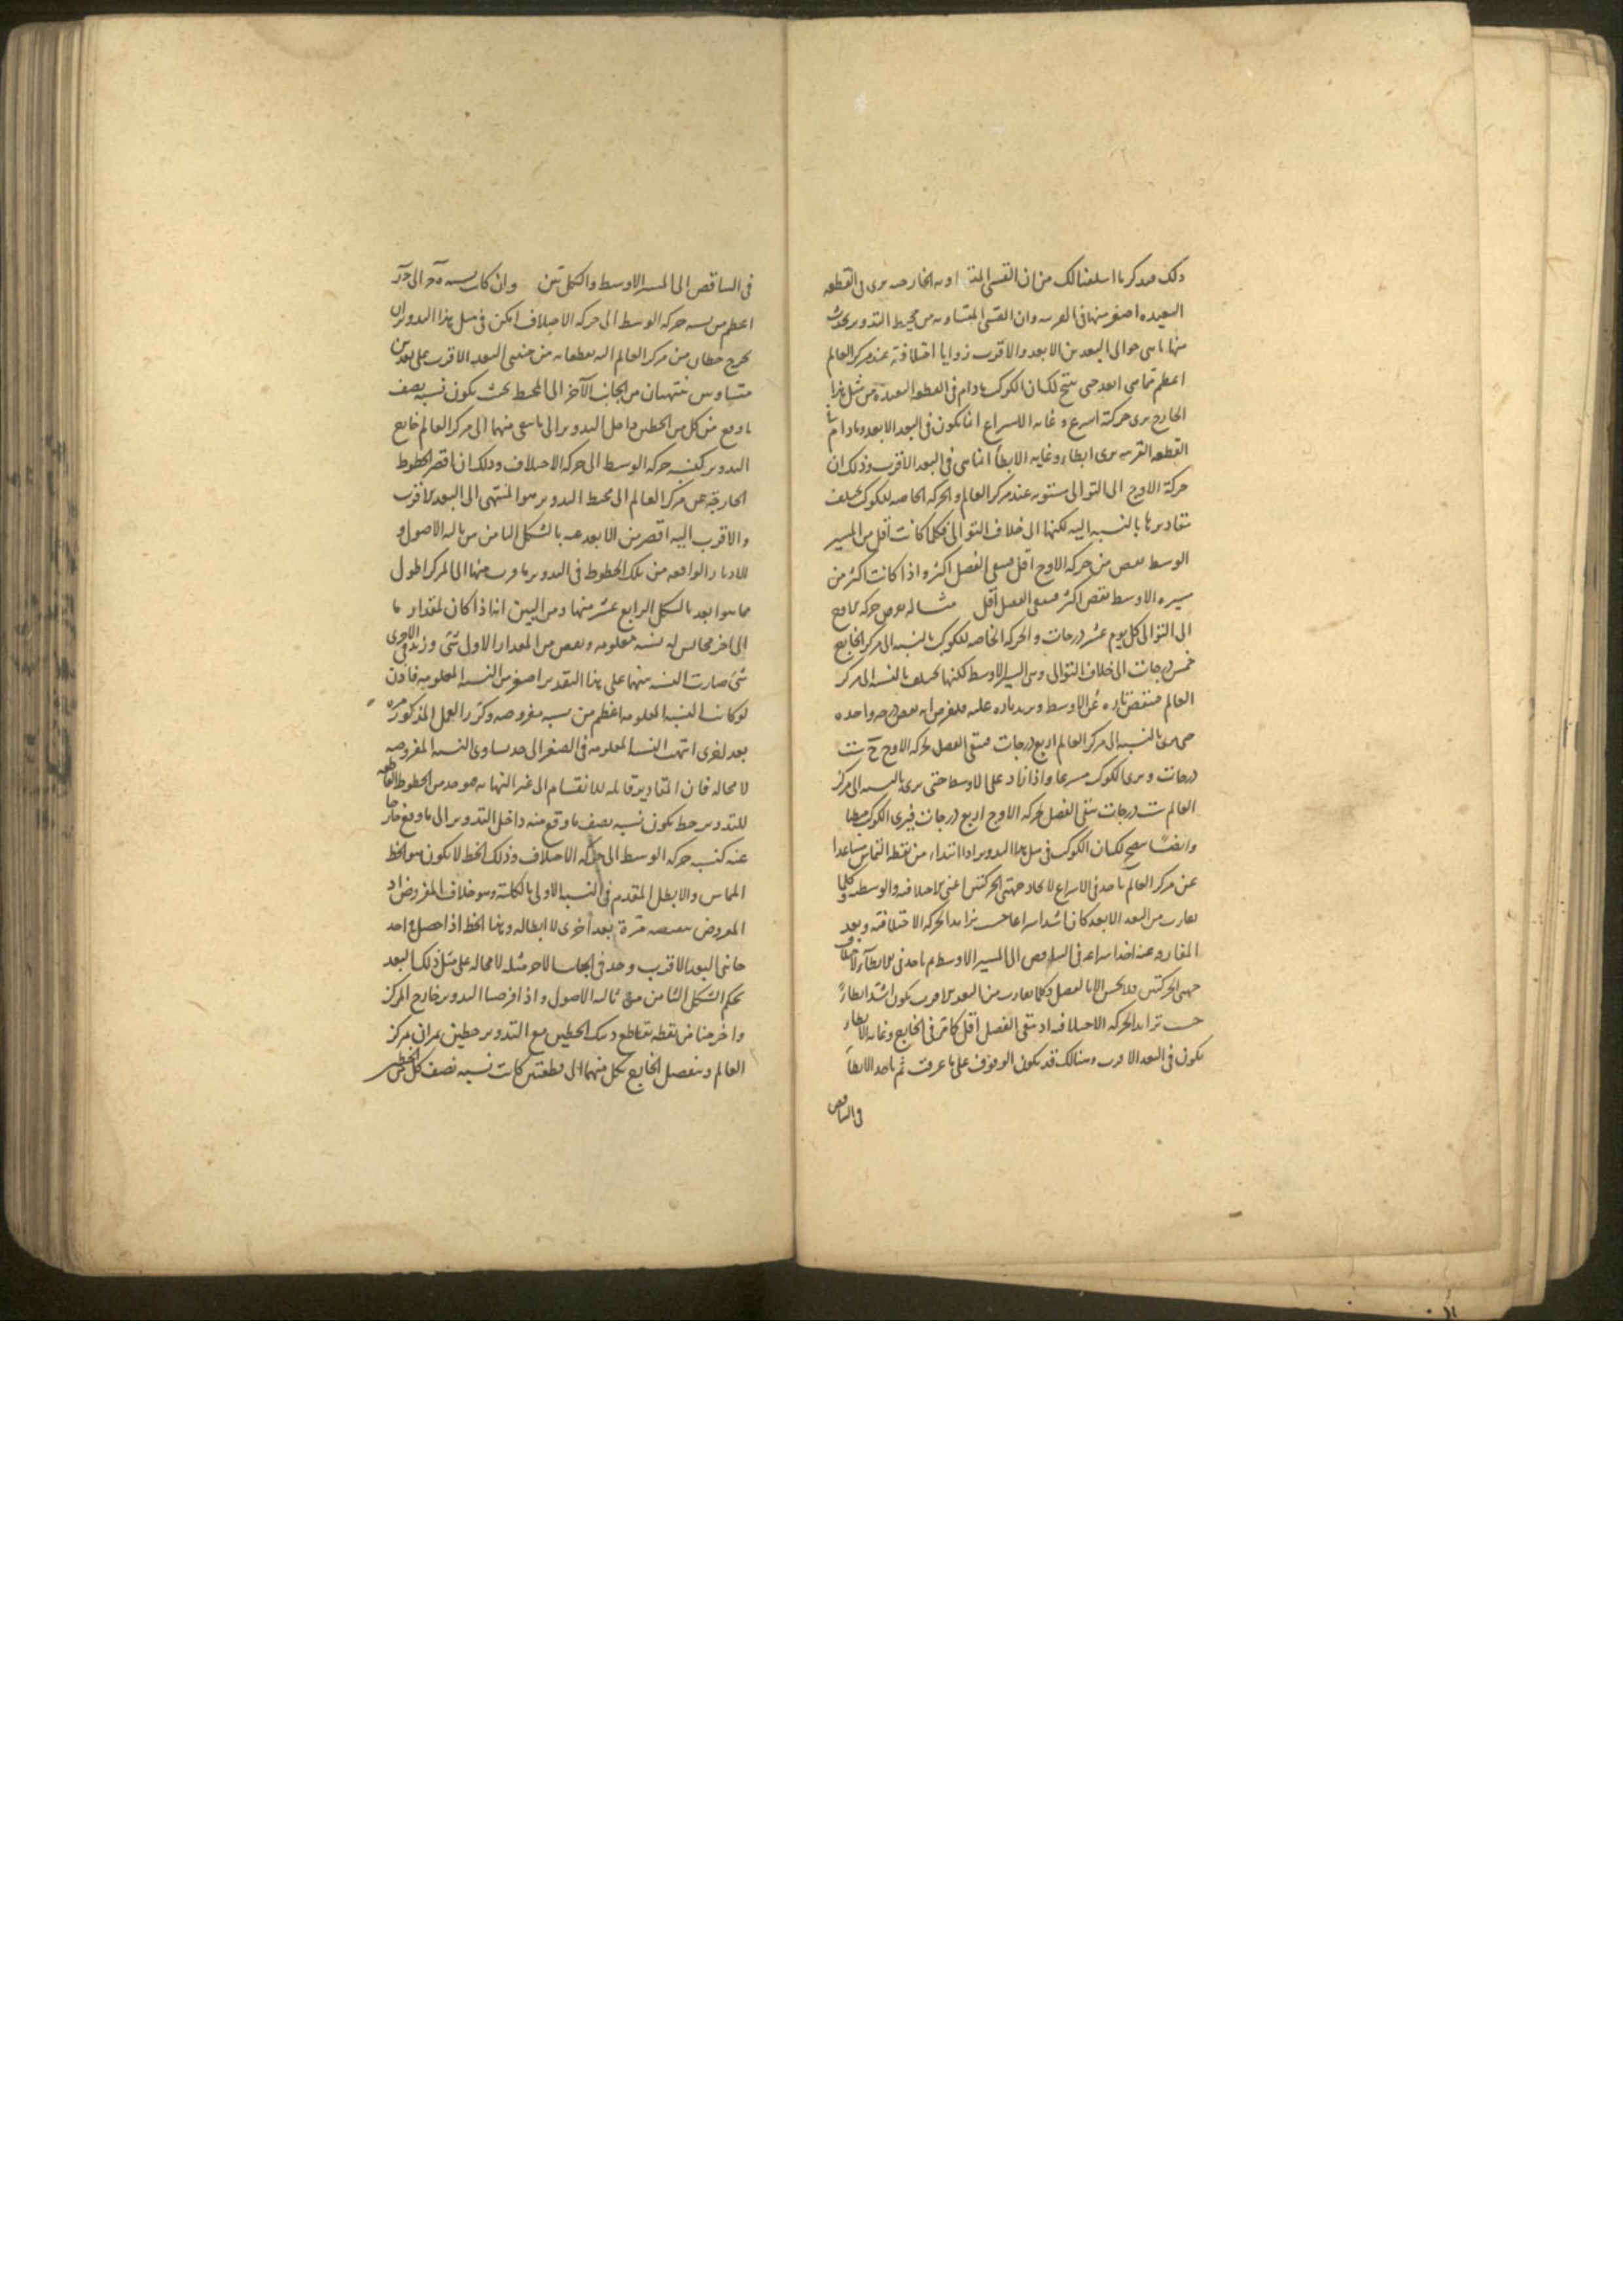 ذلك فتذكر ما اسلفنا لك من ان القسى المتساويه الخارجيه يرى فى القطعه
البعيده اصغر منها فى القريبه وان القسى المتساويه من محيط التدوير يحدث
منها ما هى حوالى البعدين الابعد والاقرب زوايا اختلافية عند مركز العالم
اعظم مما هى ابعد حتى يتضح لك ان الكوكب مادام فى القطعه البعيدة من مثل هذا
الخارج يرى حركته اسرع وغايه الاسراع انما يكون فى البعد الابعد ومادام فى
القطعه القريبه يرى ابطاء وغايه الابطأ انما هى فى البعد الاقرب وذلك ان
حركة الاوج الى التوالى مستويه عند مركز العالم والحركه الخاصه للكوكب يختلف
مقاديرها بالنسبه اليه لكنها الى خلاف التوالى فكلما كانت اقل من المسير
الوسط نقص من حركه الاوج اقل فيبقى الفضل اكثر واذا كانت اكثر من
مسيره الاوسط نقص اكثر فيبقى الفضل اقل مثاله نفرض حركه الاوج
الى التوالى كل يوم عشر درجات والحركه الخاصه للكوكب بالنسبه الى مركز الخارج
خمس درجات الى خلاف التوالى وهى المسير الاوسط لكنها يختلف بالنسبه الى مركز
العالم فينقص تاره عن الاوسط ويزيد تاره عليه فلنفرض انه نقص درجه واحده
حتى يرى بالنسبه الى مركز العالم اربع درجات فيبقى الفضل لحركه الاوج ست
درجات ويرى الكوكب مسرعا واذا زاد على الاوسط حتى يرى بالنسبه الى مركز
العالم ست درجات يبقى الفضل لحركه الاوج اربع درجات فيرى الكوكب مبطئا
وايضًا يتضح لك ان الكوكب فى مثل هذا التدوير اذا ابتداء من نقطه التماس متباعدا
عن مركز العالم ياخذ فى الاسراع لاتحاد جهتى الحركتين اعنى الاختلافيه والوسطيه وكلما
تقارب من البعد الابعد كان اشد اسراعا حسب تزايد الحركه الاختلافيه وبعد
المفارقه عنه اخذ اسراعه فى التناقص الى المسير الاوسط ثم ياخذ فى الابطاء لاختلاف
جهتى الحركتين فلا يحس الا بالفضل وكلما تقارب من البعد الاقرب يكون اشد ابطاءً
حسب تزايد الحركه الاختلافيه اذ يبقى الفضل اقل كما مر فى الخارج وغايه الابطاء
يكون فى البعد الاقرب وهنالك قد يكون الوقوف على ما عرفت ثم ياخذ الابطأ
فى التناقص
فى التناقص الى المسير الاوسط والكل بين وان كانت نسبه الى
اعظم من نسبه حركه الوسط الى حركه الاختلاف امكن فى مثل هذا التدوير ان
يخرج خطان من مركز العالم اليه يقطعانه من جنبتى البعد الاقرب على بعدين
متساويين ينتهيان من الجانب الآخر الى المحيط بحيث يكون نسبه نصف
ما وقع من كل من الخطين داخل التدوير الى ما بقى منهما الى مركز العالم خارج
التدوير كنسبه حركه الوسط الى حركه الاختلاف وذلك لان اقصر الخطوط
الخارجه من مركز العالم الى محيط التدوير هو المنتهى الى البعد الاقرب
والاقرب اليه اقصر من الابعد عنه بالشكل الثامن من ثالثه الاصول و
للاوتار الواقعه من تلك الخطوط فى التدوير ما قرب منها الى المركز اطول
مما هو ابعد بالشكل الرابع عشر منها ومن البين انه اذا كان لمقدار ما
الى اخر مجانس له نسبه معلومه ونقص من المقدار الاول شئ وزيد فى الاخرى
شئ صارت النسبه بينهما على هذا التقدير اصغر من النسبه المعلومه فاذن
لو كانت النسبه المعلومه اعظم من نسبه مفروضه وكرر العمل المذكور مره
بعد اخرى انتهت النسبه المعلومه فى الصغر الى حد يساوى النسبه المفروضه
لا محاله فان المقادير قابله للانقسام الى غير النهايه فيوجد من الخطوط القاطعه
للتدوير خط يكون نسبه نصف ما وقع منه داخل التدوير الى ما وقع خارجا
عنه كنسبه حركه الوسط الى حركه الاختلاف وذلك الخط لا يكون هو الخط
المماس والا بطل المتقدم فى النسب الاولى بالكلية وهو خلاف المفروض اذ
المفروض تنقيصه مرة بعد أخرى لا ابطاله وهذا الخط اذا حصل فى احد
جانبى البعد الاقرب وجد فى الجانب الاخر مثله لا محاله على مثل ذلك البعد
بحكم الشكل الثامن من ثالثه الاصول واذا فرضنا التدوير خارج المركز
واخرجنا من نقطه تقاطع ذينك الخطين مع التدوير خطين يمران بمركز
العالم وينفصل الخارج بكل منهما الى قطعتين كانت نسبه نصف كل من الخطين